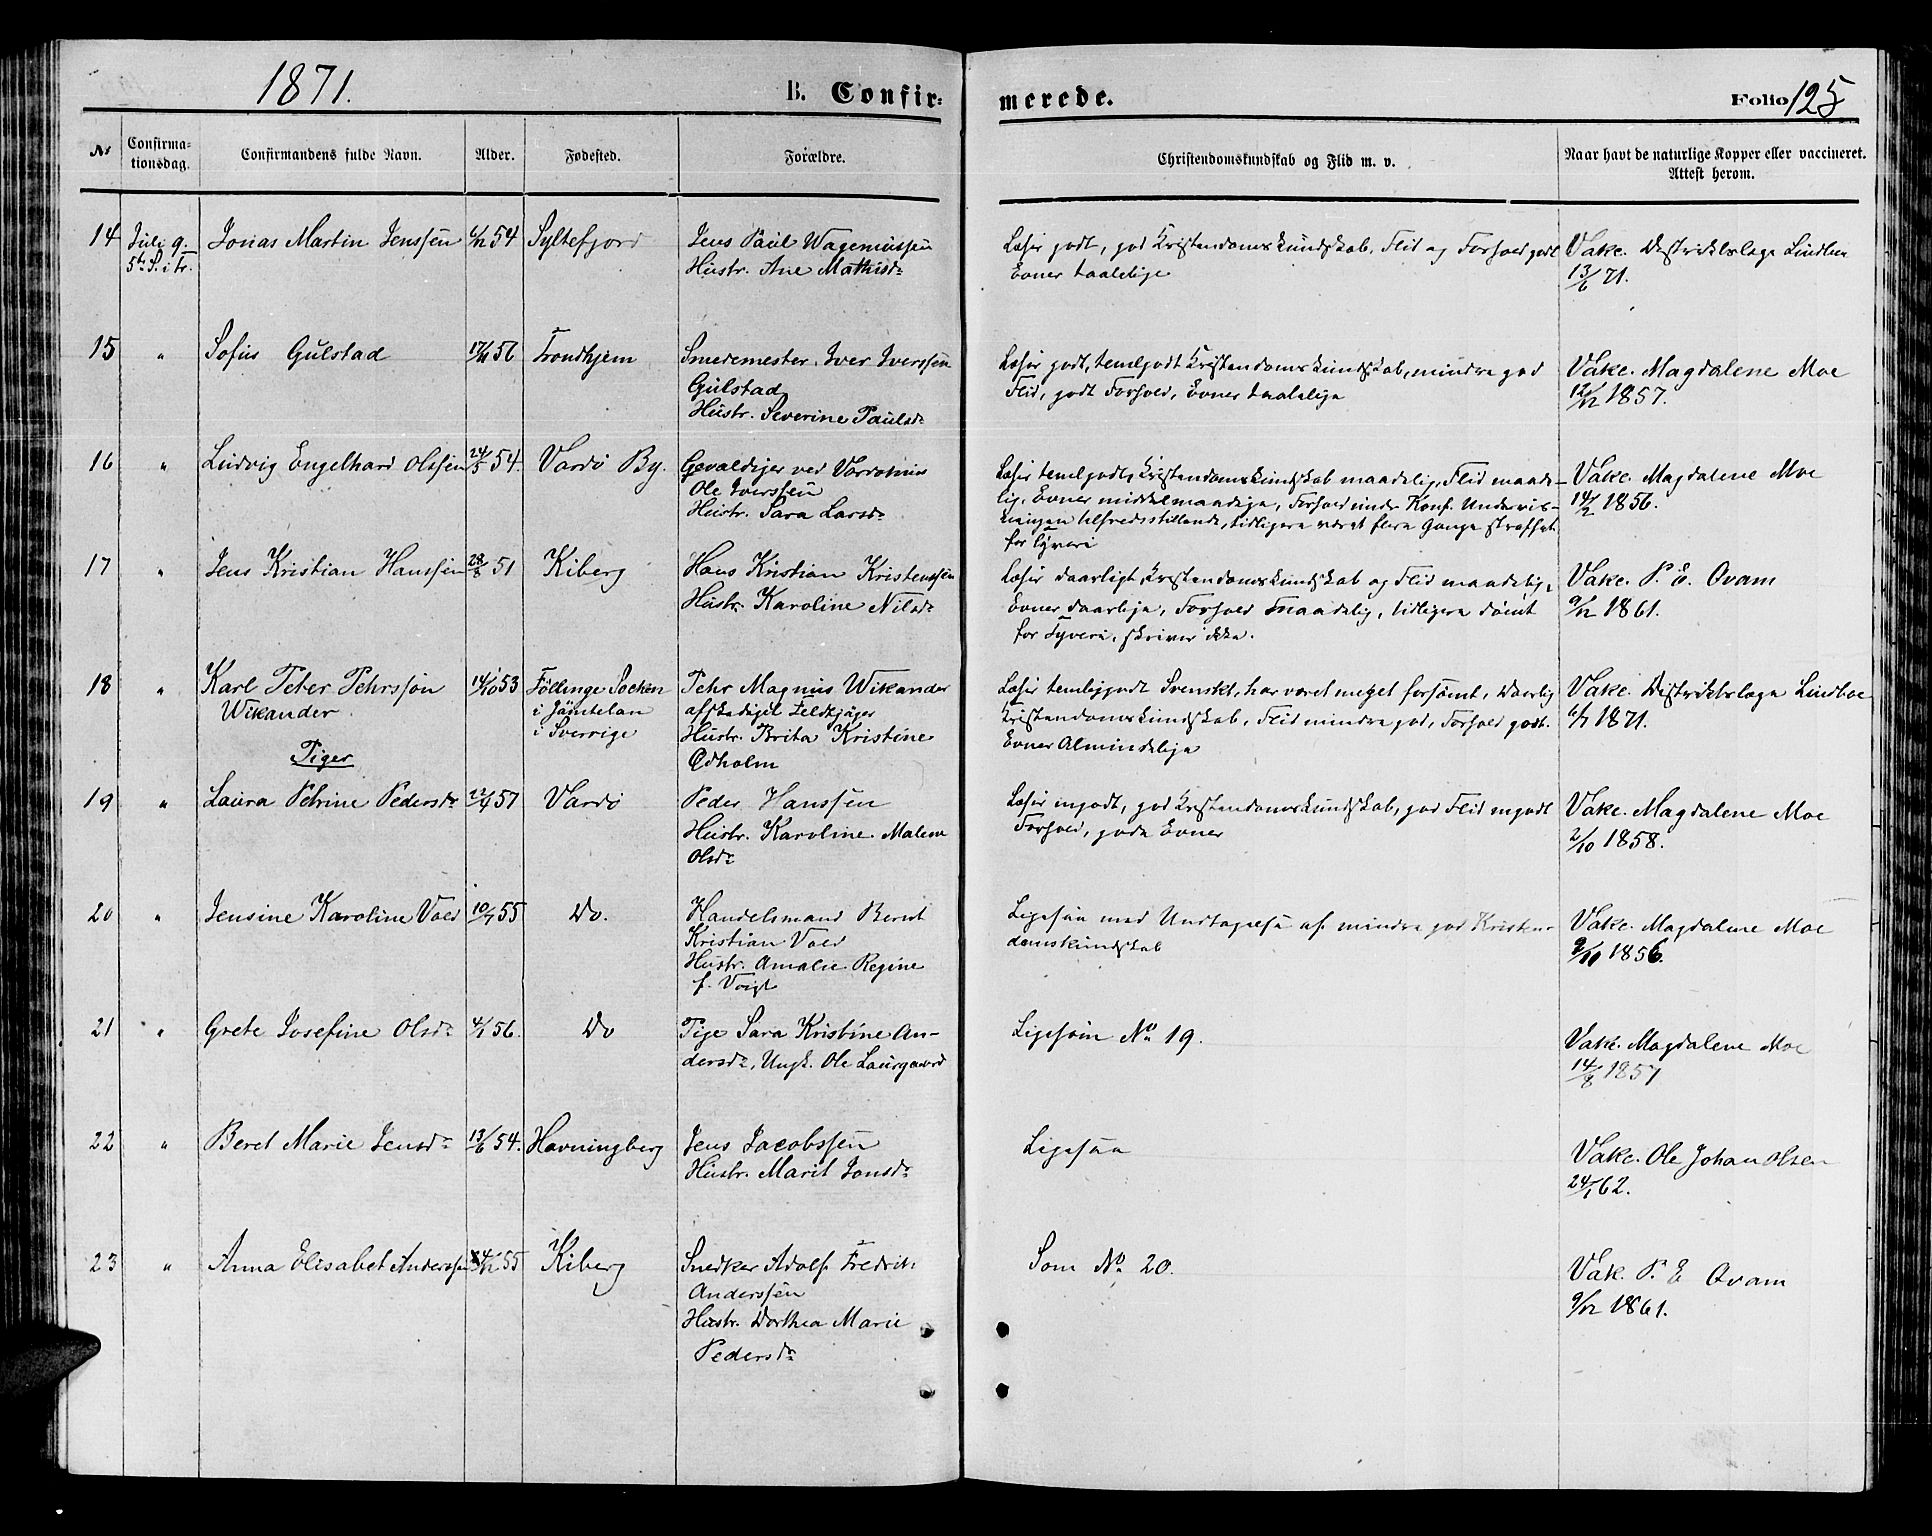 1871.
B. Confirmerede.
Folio 125
No
Confirmationsdag.
Confirmandens fulde Navn.
Alder.
Fødested.
Forældre.
Christendomskundskab og Flid m. v.
Naar havt de naturlige Kopper eller vaccineret.
Attest herom.
14 Juli 9. Jonas Martin Jenssen 6/12 54 Syltefjord Jens Paul Wagemussen
5te S. i Tr. Hustr. Ane Mathisdr
Læser godt, god Kristendomskundskab, Flid og Forhold godt
Evner taalelige
Vakc. Distriktslæge Lindboe
13/6 71.
15 " Sofus Gulstad 17/11 56 Trondhjem Smedemester Iver Iverssen
Gulstad
Hustr. Severine Paulsdr
Læser godt, temlgodt Kristendomskundskab, mindre god
Flid, godt Forhold, Evner taalelige
Vakc. Magdalene Moe
12/12 1857.
16 " Ludvig Engelhard Olssen 24/5 54. Vardö By. Gevaldiger ved Vardøhus
Ole Iverssen
Hustr. Sara Larsdr
Læser temlgodt, Kristendomskundskab maadelig, Flid maade-
lig, Evner middelmaadige, Forhold under Konf. Undervis-
ningen tilfredsstillende, tidligere været flere Gange straffet
for Tyveri
Vakc. Magdalene Moe
14/2 1856.
17 " Jens Kristian Hanssen 28/8 51 Kiberg Hans Kristian Kristenssen
Hustr. Karoline Nilsdr
Læser daarligt, Kristendomskundskab og Flid maadelig,
Evner daarlige, Forhold maadelig, tidligere dømt
for Tyveri, skriver ikke.
Vakc. P. E. Qvam
9/12 1861.
18 " Karl Peter Pehrssøn 14/10 53 Föllinge Socken Pehr Magnus Wikander
Wikander i Jämtelan afskediget Feldtjäger
i Sverrige Hustr. Brita Kristine
Ödholm
Læser temlig godt Svenskt, har været meget forsømt, daarlig
Kristendomskundskab, Flid mindre god, Forhold godt.
Evner Almindelige
Vakc. Distriktslæge Lindboe
6/7 1871.
Piger
19 " Laura Petrine Pedersdr 22/4 57 Vardö Peder Hanssen
Hustr. Karoline Malene
Olsdr
Læser mgodt, god Kristendomskundskab, god Flid mgodt
Forhold, gode Evner
Vakc. Magdalene Moe
2/10 1858.
20 " Jensine Karoline Voed 10/7 55 Do. Handelsmand Bernt
Kristian Voed
Hustr. Amalie Regine
f. Voigt
Ligesaa med Undtagelse af mindre god Kristen-
domskundskab
Vakc. Magdalene Moe
9/10 1856.
21 " Grete Josefine Olsdr 4/1 56. Do Pige Sara Kristine An-
dersdr, Ungk. Ole Laurgaard
Ligesom No 19.
Vakc. Magdalene Moe
14/8 1857
22 " Beret Marie Jensdr 13/6 54. Havningberg Jens Jacobssen
Hustr. Marit Jonsdr
Ligesaa
Vakc. Ole Johan Olsen
24/1 62.
23 " Anna Elisabet Anderssen 4/12 55 Kiberg Snedker Adolf Fredrik
Anderssen
Hustr. Dorthea Marie
Pedersdr
Som No 20.
Vak. P. E Qvam
9/12 1861.